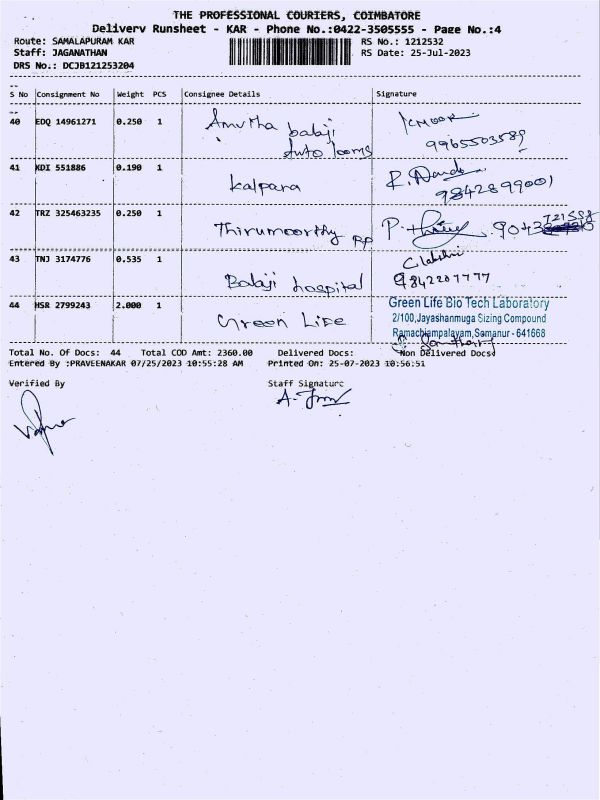 THE PROFESSIONAL COURIERS, COIMBATORE
Delivery Runsheet - KAR - Phone No.:0422-3505555 - Page No.:4
Route: SAMALAPURAM KAR RS No.: 1212532
Staff: JAGANATHAN RS Date: 25-Jul-2023
DRS No.: DCJB121253204
S No Consignment No Weight PCS Consignee Details Signature
40 EDQ 14961271 0.250 1 Amutha balaji
Auto looms
9965503589
41 KDI 551886 0.190 1 Kalpana R. Nanda
9842899001
42 TRZ 325463235 0.250 1 Thirumoorthy PP P.
43 TNJ 3174776 0.535 1 Balaji hospital
9842207777
44 HSR 2799243 2.000 1 Green Life
Green Life Bio Tech Laboratory
2/100,Jayashanmuga Sizing Compound
Ramachiampalayam,Somanur - 641668
Total No. Of Docs: 44 Total COD Amt: 2360.00 Delivered Docs: Non Delivered Docs:
Entered By :PRAVEENAKAR 07/25/2023 10:55:28 AM Printed On: 25-07-2023 10:56:51
Verified By Staff Signature